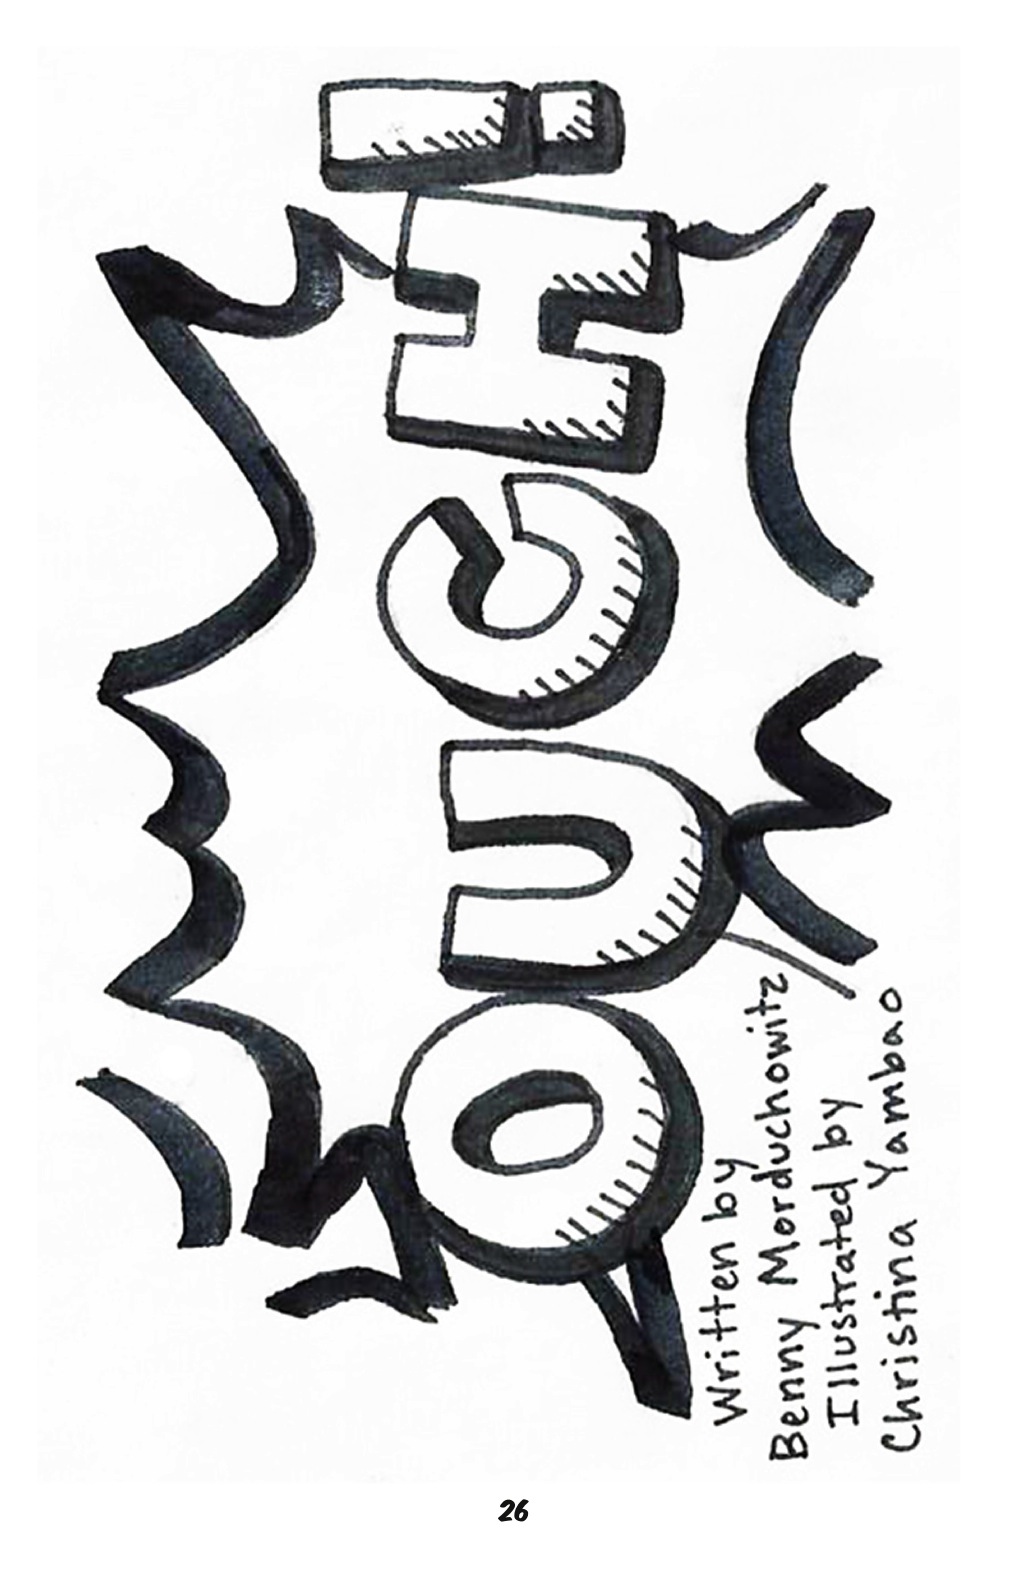 OUCH!
Written by
Benny Morduchowitz
Illustrated by
Christina Yambao
26